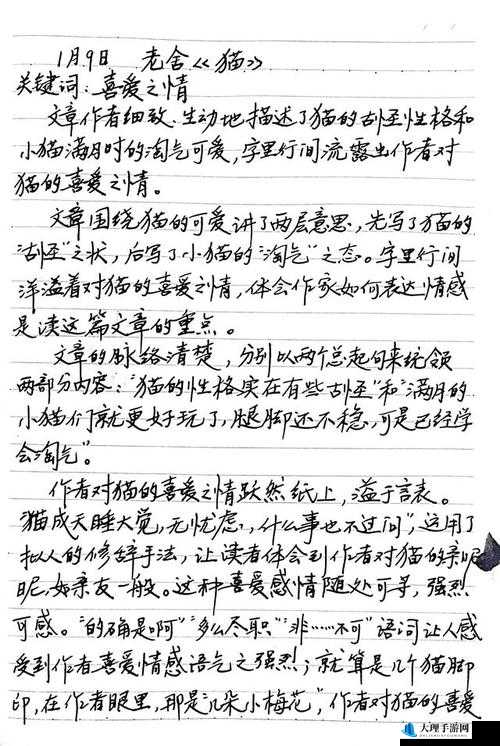 1月9日 老舍《猫》
关键词：喜爱之情
文章作者细致、生动地描述了猫的古怪性格和
小猫满月时的淘气可爱，字里行间流露出作者对
猫的喜爱之情。
文章围绕猫的可爱讲了两层意思，先写了猫的
“古怪”之状，后写了小猫的“淘气”之态。字里行间
洋溢着对猫的喜爱之情，体会作家如何表达情感
是读这篇文章的重点。
文章的脉络清楚，分别以两个总起句来统领
两部分内容：“猫的性格实在有些古怪”和“满月的
小猫们就更好玩了，腿脚还不稳，可是已经学
会淘气”。
作者对猫的喜爱之情跃然纸上，溢于言表。
“猫成天睡大觉，无忧虑，什么事也不过问”，这用了
拟人的修辞手法，让读者体会到作者对猫的亲昵
昵，如亲友一般。这种喜爱感情随处可寻，强烈
可感。“的确是啊”“多么尽职”“非……不可”语词让人感
受到作者喜爱情感语气之强烈；就算是几个猫脚
印，在作者眼里，那是“几朵小梅花”，作者对猫的喜爱
大理手游网